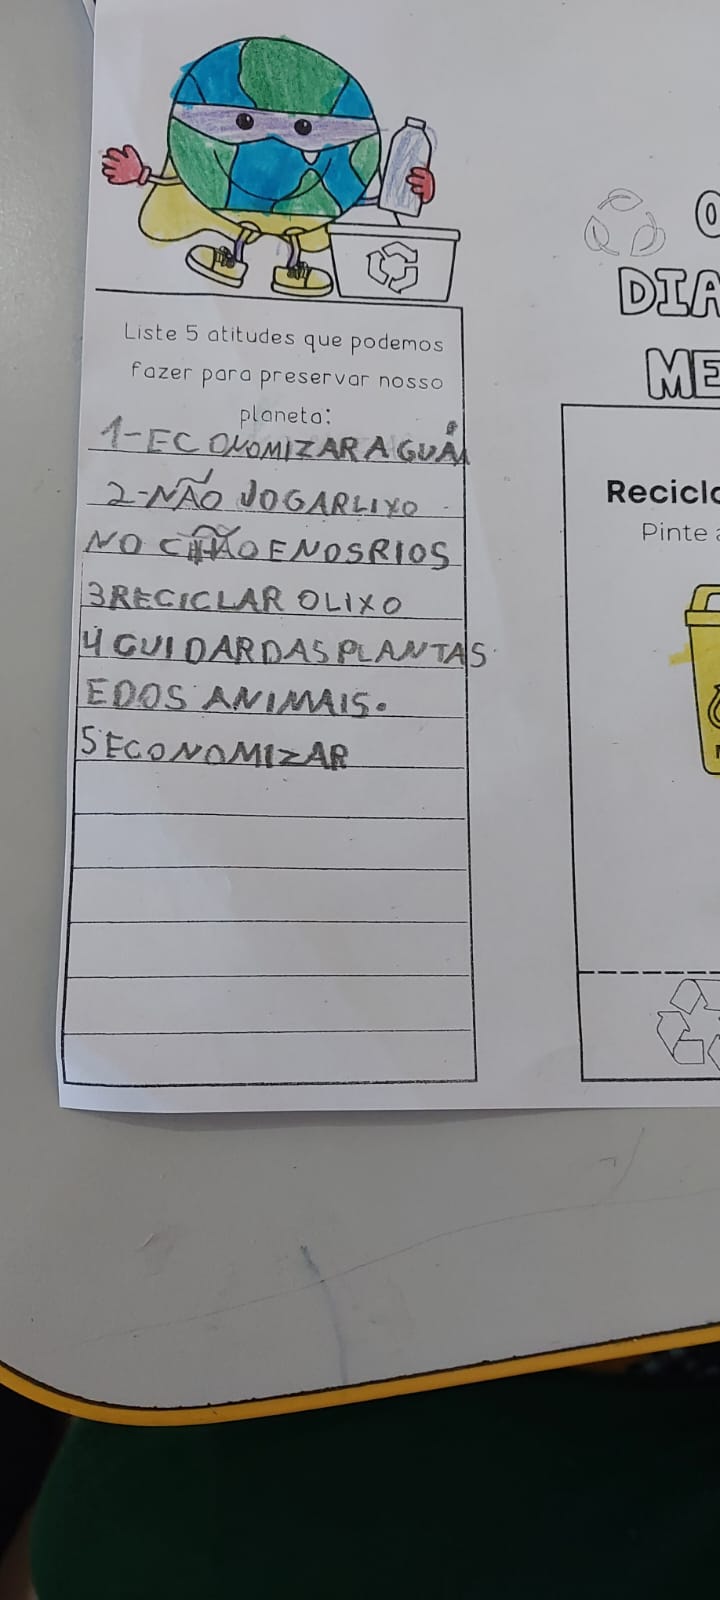 Liste 5 atitudes que podemos
fazer para preservar nosso
planeta:
1-ECONOMIZAR AGUÁ
2-NÃO JOGAR LIXO
NO CHÃO E NOS RIOS
3 RECICLAR O LIXO
4 CUIDAR DAS PLANTAS
E DOS ANIMAIS.
5 ECONOMIZAR
O
DIA
ME
Recicl
Pinte